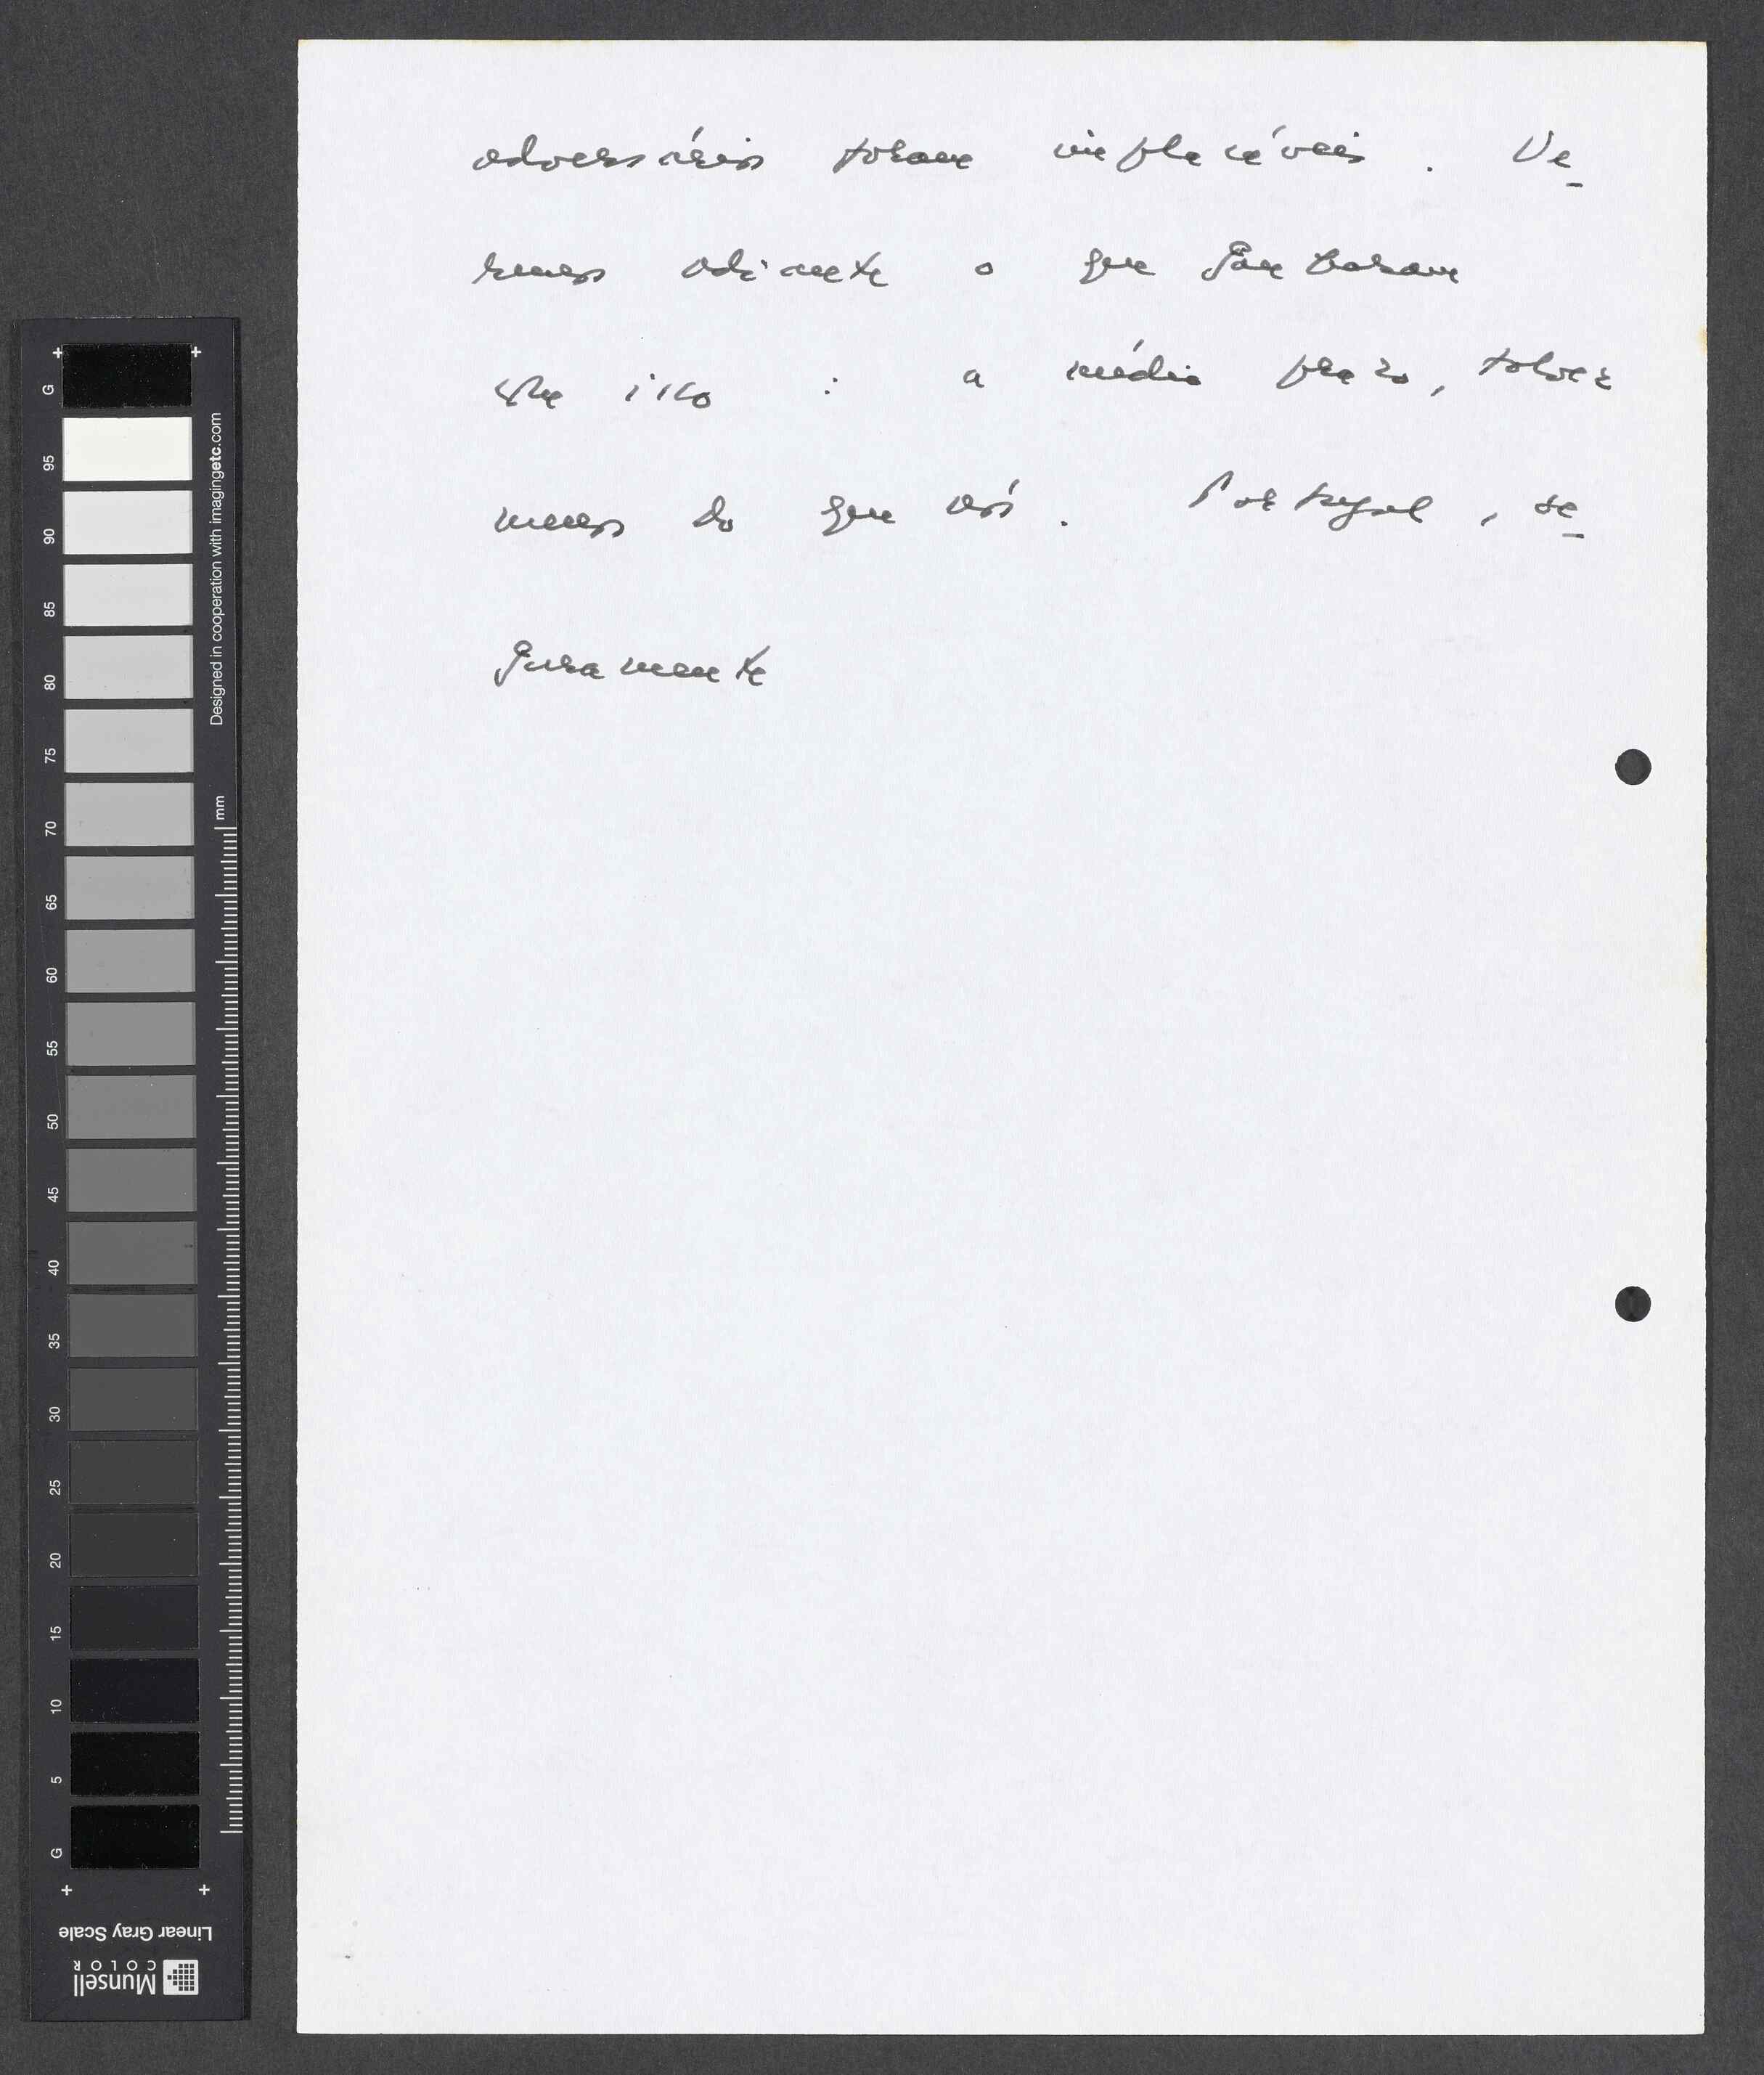 adversários foram implacáveis. Ve-
remos adiante o que ganharam
com isto : a médio prazo, talvez
menos do que nós. Portugal, se-
guramente
G
95
90
85
80
75
70
65
60
55
50
45
40
35
30
25
20
15
10
5
G
Designed in cooperation with imagingetc.com
mm
Linear Gray Scale
Munsell
COLOR